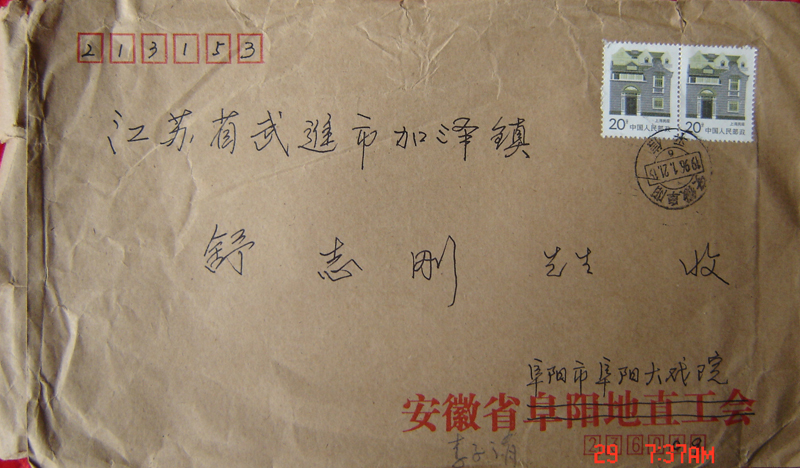 213153
20分 中国人民邮政
20分 中国人民邮政
上海民居
上海民居
1996.1.21.15
安徽阜阳
江苏省武进市加泽镇
舒志刚 先生 收
阜阳市阜阳大戏院
安徽省阜阳地直工会
2360
29 7:37AM